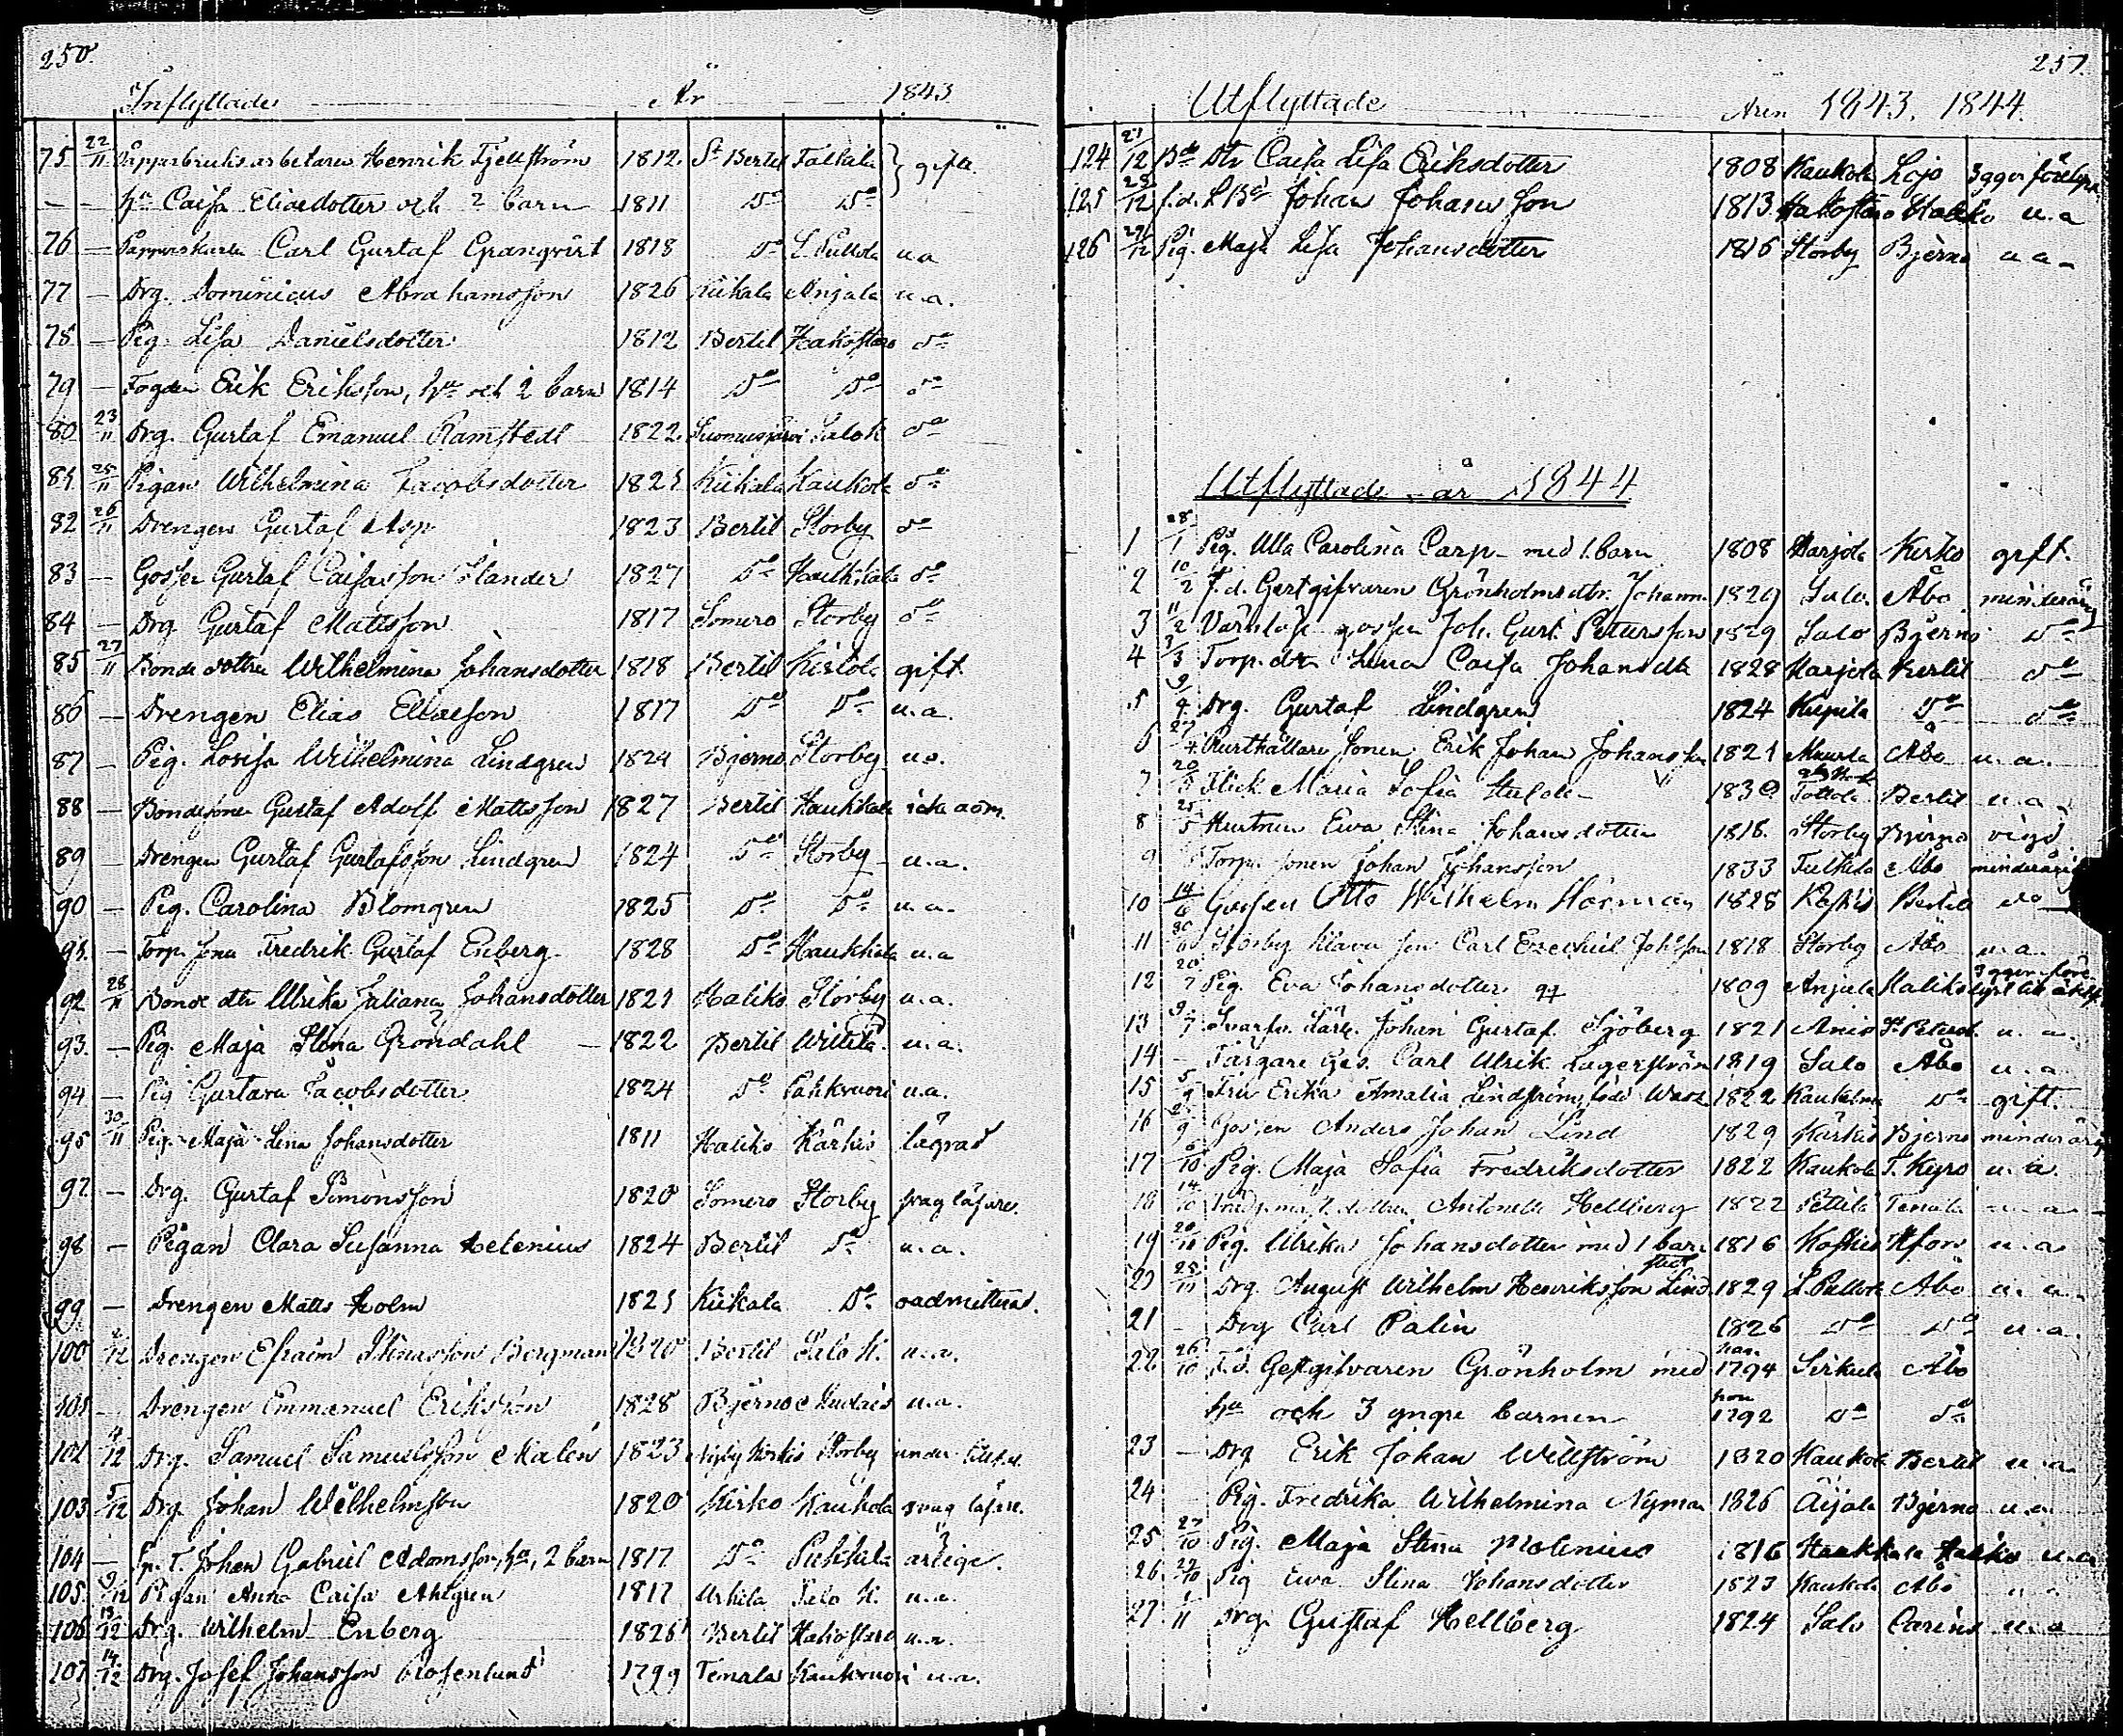 250.
Inflyttade År 1843.
75 22/11 Pappersbruks arbetaren Henrik Fjellström 1812. St Bertil gifta.
— — hu Caisa Eliaedotter och 2 barn 1811 Do Do
76 — Carl Gustaf Granqvist 1818 Do L Pullola u a
77 — Drg. Dominicus Abrahamsson 1826 Kiikala Anjala u.a.
78 — Pig. Lisa Danielsdotter 1812 Bertil Hakostaro do
79 — Fogden Erik Eriksson, hu och 2 barn 1814 Do Do do
80 23/11 Drg. Gustaf Emanuel Ramstedt 1822. Suomusjärvi Salo K do
81. 25/11 Pigan Wilhelmina Jacobsdotter 1821 Kiikala Kaukola do
82 26/11 Drengen Gustaf Asp 1823 Bertil Storby do
83 — Gossen Gustaf Caisasson Ilander 1827 Do Haukkala do
84 — Drg. Gustaf Mattsson 1817 Somero Storby do
85 27/11 Bonde dottren Wilhelmina Johansdotter 1818 Bertil gift.
86 — Drengen Elias Eliaeson 1817 Do Do u.a.
87 — Pig. Lovisa Wilhelmina Lindgren 1824 Bjerno Storby u.a.
88 — Bondesonen Gustaf Adolf Mattsson 1827 Bertil Haukkala icke adm.
89 — Drengen Gustaf Gustafsson Lindgren 1824 Do Storby u.a.
90 — Pig. Carolina Blomgren 1825 Do Do u.a.
91. — Torp. sonen Fredrik Gustaf Enberg 1828 Do Haukkala u.a
92 28/11 Bonde dtr Ulrika Juliana Johansdotter 1821 Haliko Storby u.a.
93. — Pig. Maja Stina Gröndahl — 1822 Bertil u.a.
94 — Pig Gustava Jacobsdotter 1824 Do Pahkvuori u.a.
95 30/11 Pig. Maja Lena Johansdotter 1811 Haliko Kärkis lägrad
97. — Drg. Gustaf Simonsson 1820 Somero Storby svag läsare.
98 — Pigan Clara Susanna Helenius 1824 Bertil Do u.a.
99 — Drengen Matts Holm 1821 Kiikala Do oadmitterad.
100 2/12 Drengen Efraim Stinasson Bergman 1820 Bertil Salo K. u.a.
101. — Drengen Emmanuel Eriksson 1828 Bjerno u.a.
102 4/12 Drg. Samuel Samuelsson Malén 1823 Storby under
103 5/12 Drg. Johan Wilhelmsson 1820 Kisko Kaukola svag läsare.
104 — Johan Gabriel Adamsson, hu, 2 barn 1817 Do Pukkila
105. 9/12 Pigan Anna Caisa Ahlgren 1817 Salo K. u.a.
106 13/12 Drg. Wilhelm Enberg 1826 Bertil Hakostaro u.a.
107 14/12 Drg. Josef Johansson Rosenlund 1799 Tenala Kaukvuori u.a.
251.
Utflyttade Åren 1843. 1844.
124 21/12 Bde Dtr Caisa Lisa Eriksdotter 1808 Kaukola Lojo 3 ggr förelyst
125 28/12 f.d. Johan Johansson 1813 Hakostaro Haliko u.a
126 29/12 Pig. Maja Lisa Johansdotter 1816 Storby Bjerno u a
Utflyttade år 1844
1 8/1 Pig. Ulla Carolina Carp med 1. barn 1808 Karjola Kisko gift.
2 10/2 f.d. Gestgifvaren Grönholms dtr. Johann. 1829 Salo. Åbo minderårig
3 11/2 Värnlöse gossen Joh. Gust. Petersson 1829 Salo Bjerno Do
4 3/3 Torp. dtr. Lena Caisa Johansdtr 1828 Karjola Bertil do
5 9/4 Drg. Gustaf Lindgren 1824 Kupila Do do
6 27/4 Rusthållare sonen Erik Johan Johansson 1821 Åbo u.a.
7 20/5 Flick Maria Sofia 1830 Tottola Bertil u.a.
8 25/5 Hustrun Ewa Stina Johansdotter 1816. Storby Bjerno vigd
9 Torp. sonen Johan Johansson 1833 Åbo minderårig
10 14/6 Gossen Otto Wilhelm Hörman 1828 Koskis Bertil do
11 30/6 Storby Klava son Carl Ezechiel Johsson 1818 Storby Åbo u.a.
12 20/7 Pig. Eva Johansdotter 1809 Anjala Haliko 3 ggr förelyst till äktsk.
13 9/7 Svarfv. Lärl. Johan Gustaf Sjöberg 1821 St Petersb. u. a.
14 — Färgare Ges. Carl Ulrik Lagerström 1819 Salo Åbo u. a
15 5/9 Fru Erika Amalia Lindström, född 1822 Do gift.
16 9 Gossen Anders Johan Lind 1829 Kärkis Bjerno minderårig
17 6/10 Pig. Maja Sofia Fredriksdotter 1822 Kaukola T. Kyro u. a.
18 14/10 dottren Antonette Hellberg 1822 Pettilä Tenala u. a
19 20/10 Pig. Ulrika Johansdotter med 1 barn 1816 Koskis Hfors u. a
20 25/10 Drg. August Wilhelm Henriksson Lindstedt 1829 L. Pullola Åbo u. a.
21 — Drg Carl Palin 1826 Do Do u.a.
22 26/10 f.d. Gestgifvaren Grönholm med han 1794 Åbo
hu och 3 yngre barnen hon 1792 Do do
23 — Drg Erik Johan Willström 1820 Kaukola Bertil u. a
24 — Pig. Fredrika Wilhelmina Nyman 1826 Aijala Bjerno u.a
25 27/10 Pig. Maja Stina Molenius 1816 Haukkala Haliko u.a
26 29/10 Pig Ewa Stina Johansdotter 1823 Kaukola Åbo u a
27. 1/11 Drg. Gustaf Hellberg 1824 Salo Carins u. a